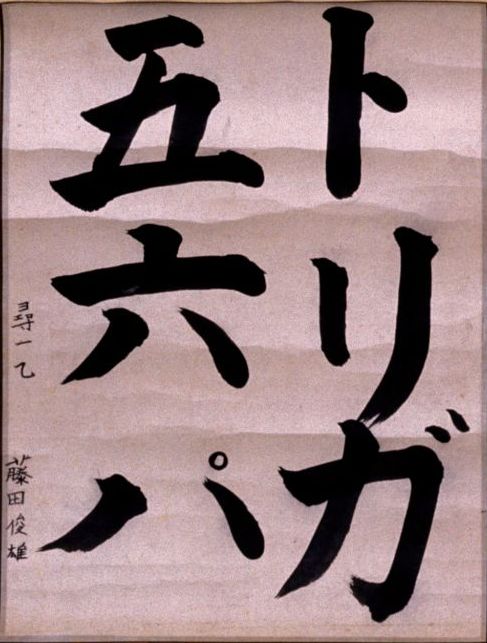 トリガ
五六パ
尋一乙 藤田俊雄